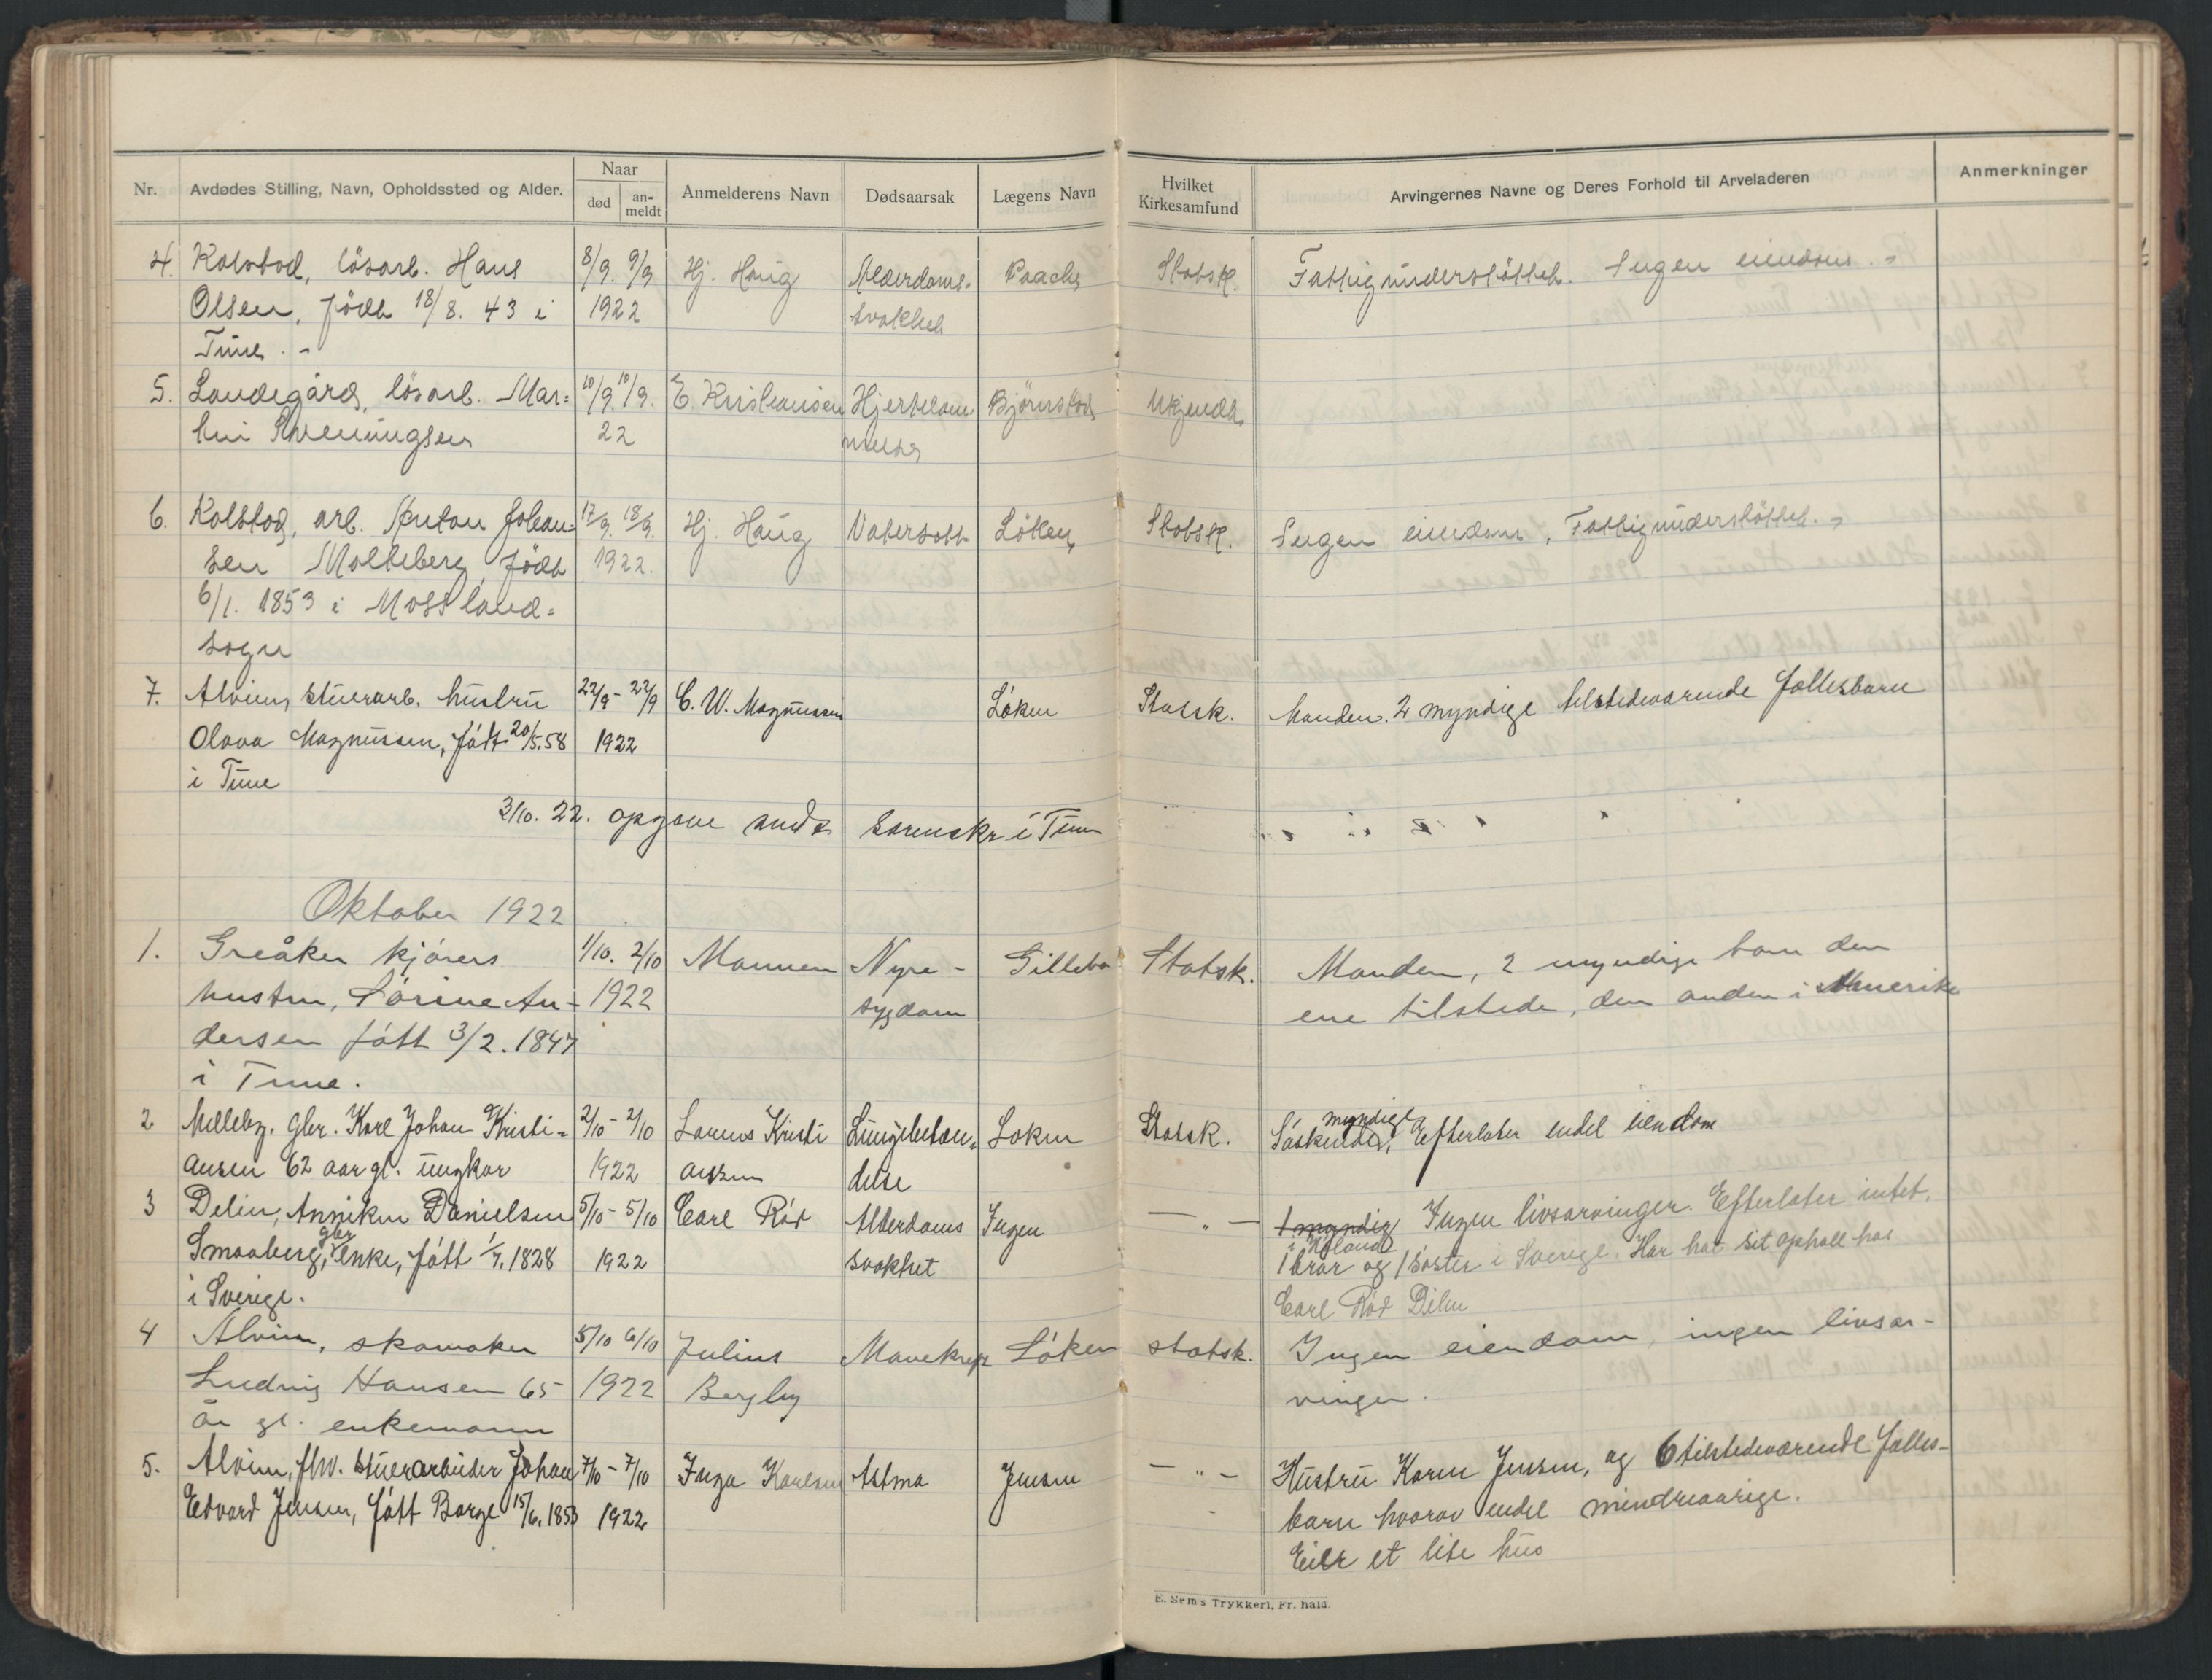 Nr. Avdødes Stilling, Navn, Opholdssted og Alder. Naar død an-meldt Anmelderens Navn Dødsaarsak Lægens Navn Hvilket Kirkesamfund Arvingernes Navne og Deres Forhold til Arveladeren Anmerkninger
4. Kolstad, lösarb. Hans 8/9. 9/9 Hj. Haug Alderdoms- Paache Statsk. Fattigunderstöttet. Ingen eiendom. -
Olsen, födt 18/8. 43 i 1922 svakhet
Tune. -
5. Sandegård, lösarb. Mar= 10/9. 10/9. E. Kristiansen Hjertelam- Björnstad Ukjendt
22 melse
6. Kolstad, arb. Anton Johan= 17/9. 18/9. Hj. Haug Vatersott Löken Statsk. Ingen eiendom, Fattigunderstöttet. -
sen Molteberg, födt 1922.
6/1. 1853 i Moss land=
sogn
7. Alvim, stuerarb. hustru 22/9 - 22/9 C. W. Magnussen Løken Statsk. Manden. 2 myndige tilstedeværende fællesbarn
Olava Magnussen, født 20/5.58 1922
i Tune
3/10. 22. opgave sendt sorenskr i Tune
Oktober 1922
1. Greåker kjørers 1/10. 2/10 Mannen Nyre- Gillebo Statsk. Manden, 2 myndige barn den
hustru, Sørine An- 1922 sygdom ene tilstede, den anden i Amerika
dersen født 3/2. 1847
i Tune.
2 Melleby. gbr. Karl Johan Kristi= 2/10 - 2/10 Laurits Kristi Lungebetæn= Løken Statsk. Søskende, myndige Efterlater endel eiendom
ansen 62 aar gl. ungkar 1922 ansen delse
3 Delin, Anniken Danielsen 5/10 - 5/10 Carl Rød Alderdoms Ingen — " — 1 myndig Ingen livsarvinger. Efterlater intet.
Smaaberg, gbr enke, født 1/7. 1828 1922 svakhet 1 bror i Høland og 1 søster i Sverige. Har hat sit ophold hos
i Sverige. Carl Rød Delin
4 Alvim, skomaker 5/10 6/10 Julius Mavekræft Løken statsk. Ingen eiendom, ingen livsar-
Ludvig Hansen 65 1922 Bergby vinger.
år gl. enkemann
5. Alvim, fhv. stuerarbeider Johan 7/10 - 7/10 Inga Karlsen Astma Jensen — " — Hustru Karen Jensen, og 6 tilstedeværende fælles-
Edvard Jensen, født Borge 15/6. 1853 1922 barn hvorav endel mindreaarige.
Eier et lite hus
E. Sem's Trykkeri, Fr.hald.